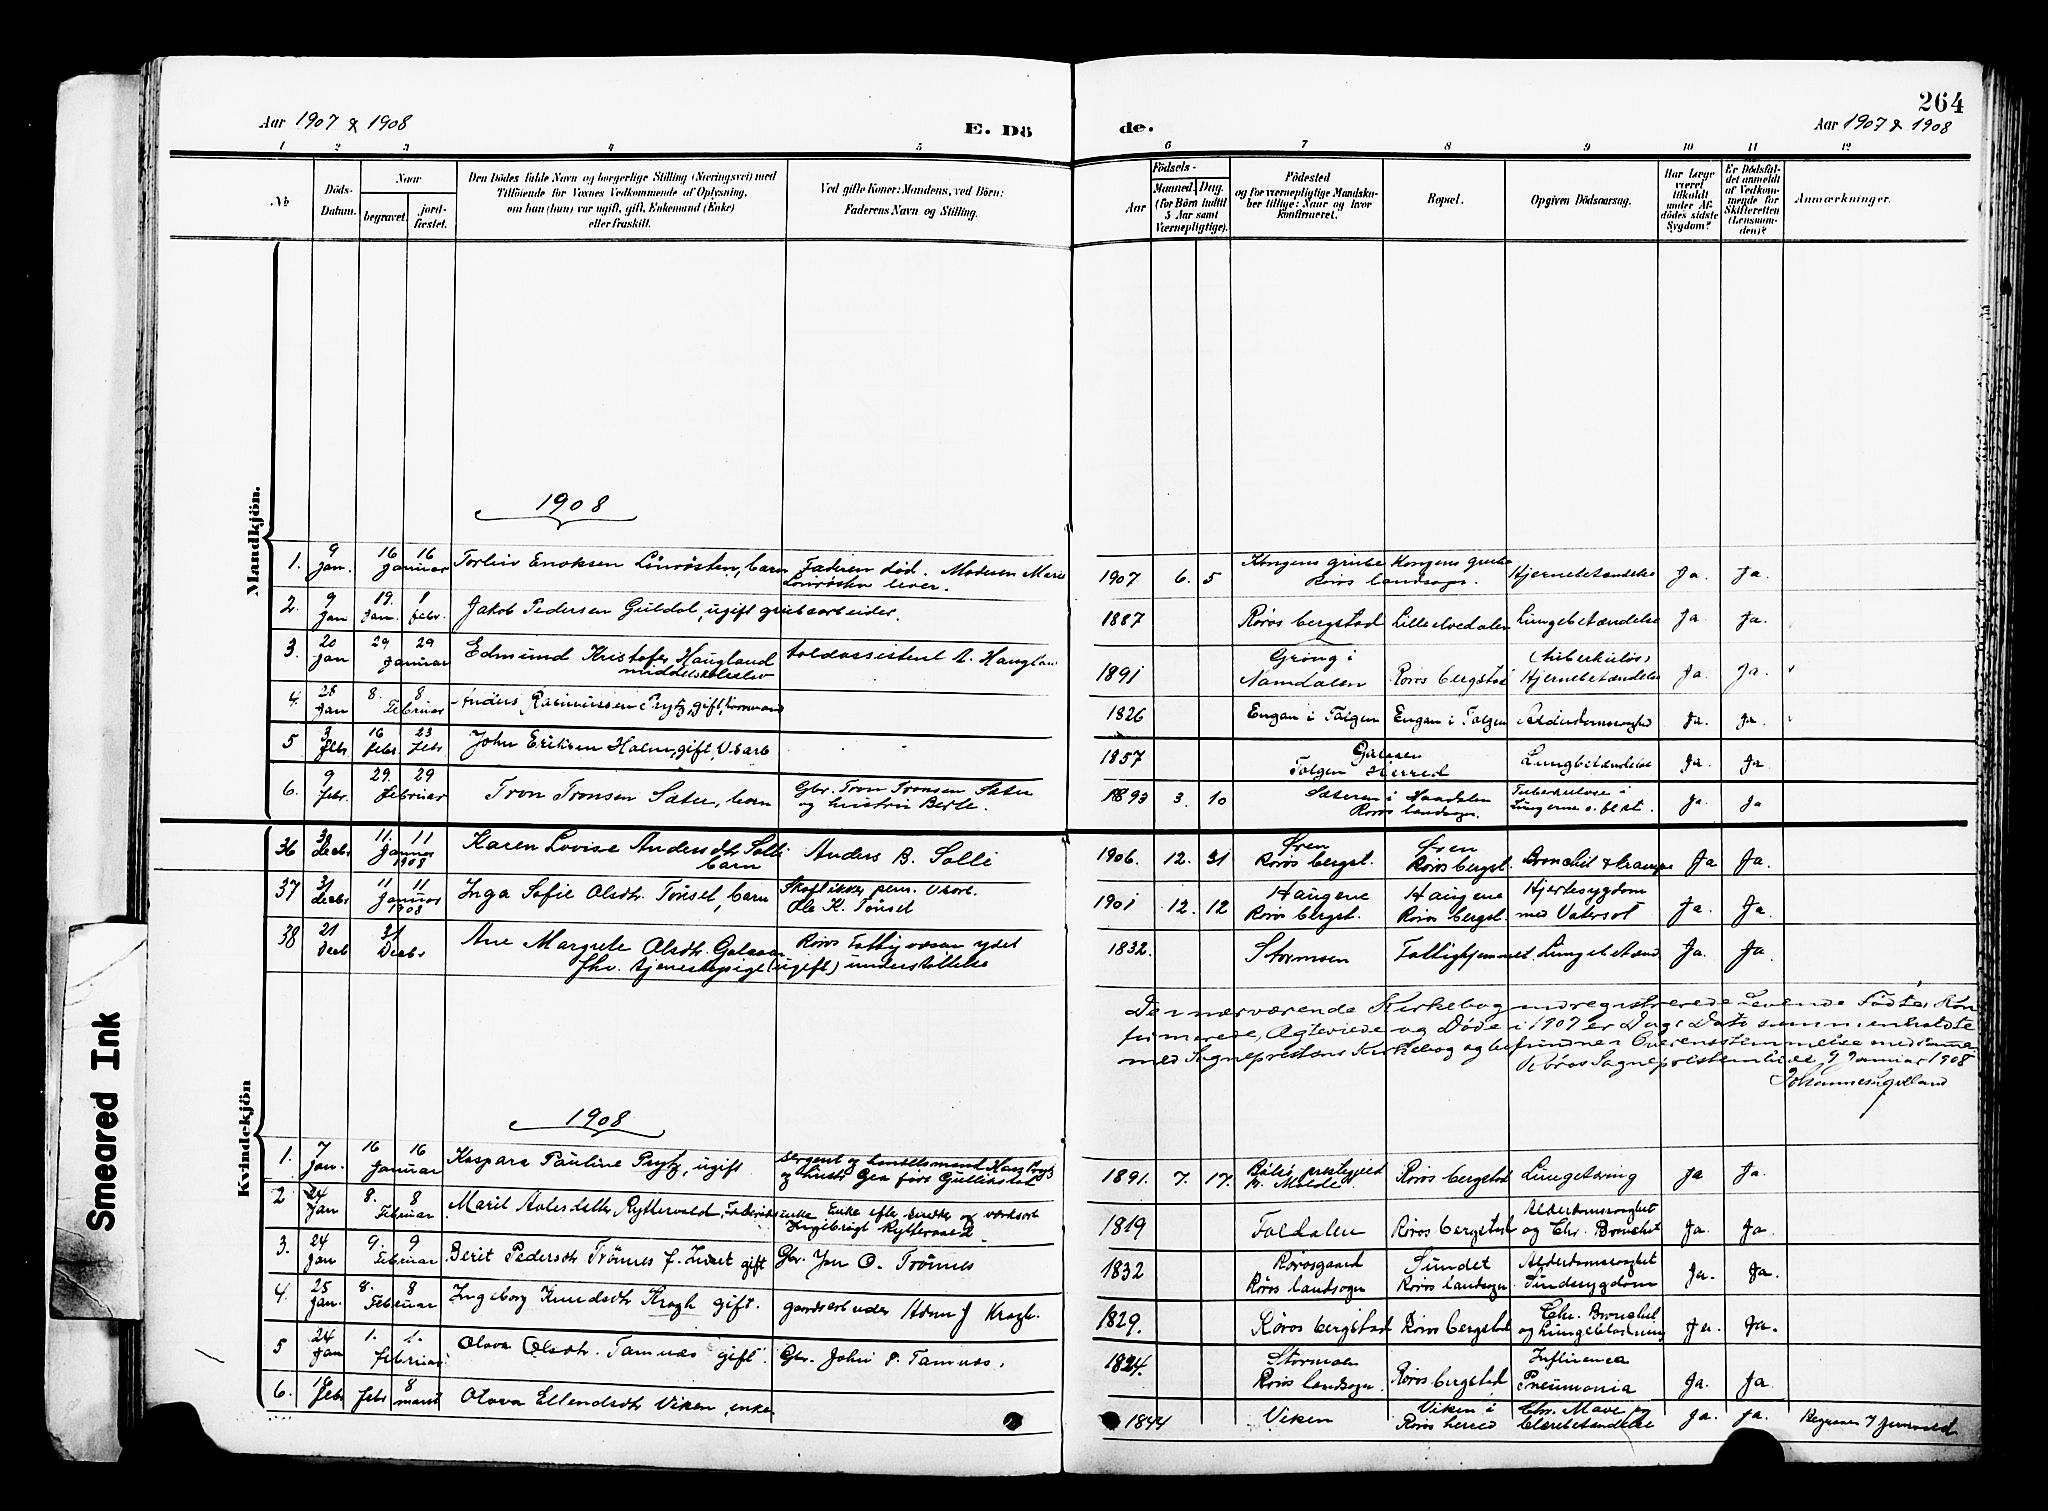 264
Aar 1907 & 1908
E. Dö
de.
Aar 1907 & 1908
1 2 3 4 5 6 7 8 9 10 11 12
No
Döds-Datum.
Naar
begravet.
jord-fæstet.
Den Dödes fulde Navn og borgerlige Stilling (Næringsvei) med
Tilföiende for Voxnes Vedkommende af Oplysning,
om han (hun) var ugift, gift, Enkemand (Enke)
eller fraskilt.
Ved gifte Koner: Mandens, ved Börn:
Faderens Navn og Stilling.
Födsels-
Aar
Maaned. Dag.
(for Börn indtil
5 Aar samt
Værnepligtige).
Födested
og for værnepligtige Mandskaber tillige: Naar og hvor
konfirmeret.
Bopæl.
Opgiven Dödsaarsag.
Har Læge
været
tilkaldt
under Afdödes sidste
Sygdom?
Er Dödsfaldet anmeldt
af Vedkommende for
Skifteretten
(Lensmanden)?
Anmærkninger.
Mandkjön.
1908
1. 9 Jan. 16 16 Januar Torleiv Enoksen Lönrösten, barn Faderen död. Moderen Marie Lönrösten lever. 1907 6. 5 Kongens grube Röros landsogn. Kongens grube Hjernebetændelse Ja. Ja.
2. 9 Jan 19. Jan. 1 febr. Jakob Pedersen Guldal, ugift grubearbeider. 1887 Röros bergstad Lilleelvedalen Lungebetændelse Ja. Ja.
3. 20 Jan 29 29 Januar Edmund Kristofer Haugland middelskoleelev toldassistent A. Haugland 1891 Grong i Namdalen Röros bergstad (Tuberkulös) Hjernebetændelse Ja. Ja.
4. 25 Jan 8. 8 Februar Anders Rasmussen Prytz, gift, 1826 Engan i Tolgen Engan i Tolgen Alderdomssvaghed Ja. Ja.
5 3 Febr. 16 Febr. 23 Febr John Eriksen Holm, gift, V.arb 1857 Galaaen Tolgen Herred Lungbetændelse Ja. Ja.
6. 9 Febr. 29. 29 Februar Tron Tronsen Sæter, barn Gbr. Tron Tronsen Sæter og hustru Berte. 1893 3. 10 Sæteren i Haadalen Röros landsogn. Tuberkulose i Lungerne o. fl. st. Ja. Ja
Kvindekjön
36 30 Decbr 11. 11 Januar 1908 Karen Lovise Andersdtr Solli barn Anders B. Solli 1906. 12. 31 Ören Röros bergst. Ören Röros bergst. Bronchit & krampe Ja Ja.
37 31 Decbr 11 11 Januar 1908 Inga Sofie Olsdtr. Tönset, barn pens. V.arb. Ole K. Tönset 1901 12. 12 Haugene Röros bergst. Haugene Röros bergst. Hjertesygdom med Vatersot Ja. Ja.
38 21 Decb 31 Decbr Ane Margrete Olsdtr. Galaaen fhv. tjenestepige (ugift) Röros Fattigvæsen ydet understöttelse 1832. Stormoen Fattighjemmet. Lungebetænd. Ja. Ja.
De i nærværende Kirkebog indregistrerede Levende Födte, Kon-
firmerede, Ægteviede og Döde i 1907 er Dags Dato sammenholdte
med Sogneprestens Kirkebog og befundne i Overensstemmelse med samme.
Röros Sogneprestembede, 9 Januar 1908
1908
1. 7 Jan. 16 16 Januar Kaspara Pauline Prytz, ugift sergent og handelsmand Prytz og hustr Gea före Gulliksdal 1891. 7. 17. prestegjeld Molde. Röros bergstad Lungetæring Ja Ja.
2 24 Jan 8. 8 Februar Marit Aalesdatter Ryttervold, Enke efter smelter og værksarb Ingebrigt Ryttervold. 1819 Foldalen Röros bergstad Alderdomssvaghet og Chr. Bronchit Ja. Ja.
3. 24 Jan 9. 9 Februar Berit Pedersdtr Trönnes gift Gbr. Jon O. Trönnes 1832 Rörosgaard Röros landsogn Sundet Röros landsogn Alderdomssvaghet Sindssygdom Ja. Ja.
4. 25 Jan. 8. 8 Februar Ingeborg Knudsdtr Kragh gift. gaardsarbeider Adam J Kragh. 1829. Röros bergstad Röros bergstad Chr. Bronchit og Lungebetændelse Ja. Ja.
5 24 Jan 1. 1. Februar Olava Olsdtr. Tamnæs gift. Gbr. John P. Tamnæs. 1824. Stormoen Röros landsogn. Röros bergstad Influenca Pneumonia Ja. Ja.
6. Febr Febr 8 marst Olava Ellendsdtr Viken, enke 1844 Viken Viken i Röros herred Chr. Mave og Ja. Ja.
Smeared Ink